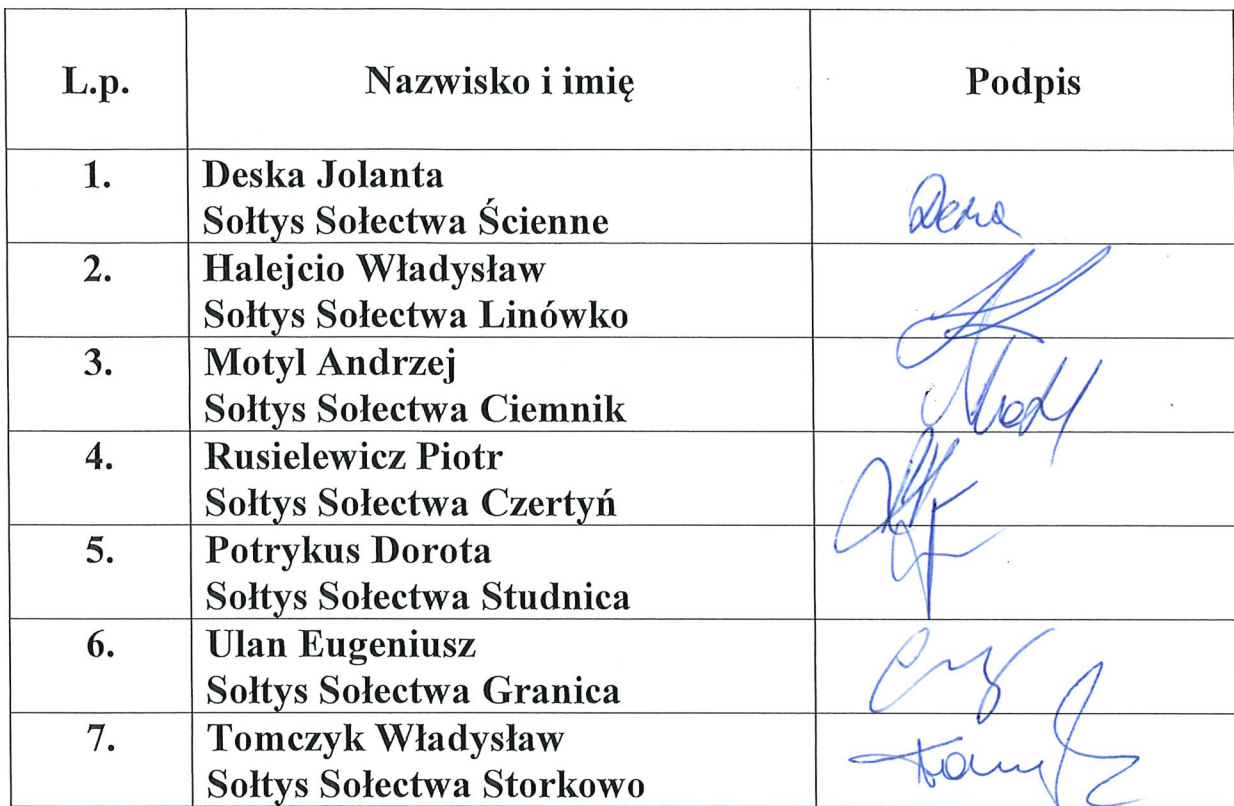 L.p. Nazwisko i imię Podpis
1. Deska Jolanta
Sołtys Sołectwa Ścienne
2. Halejcio Władysław
Sołtys Sołectwa Linówko
3. Motyl Andrzej
Sołtys Sołectwa Ciemnik
4. Rusielewicz Piotr
Sołtys Sołectwa Czertyń
5. Potrykus Dorota
Sołtys Sołectwa Studnica
6. Ulan Eugeniusz
Sołtys Sołectwa Granica
7. Tomczyk Władysław
Sołtys Sołectwa Storkowo